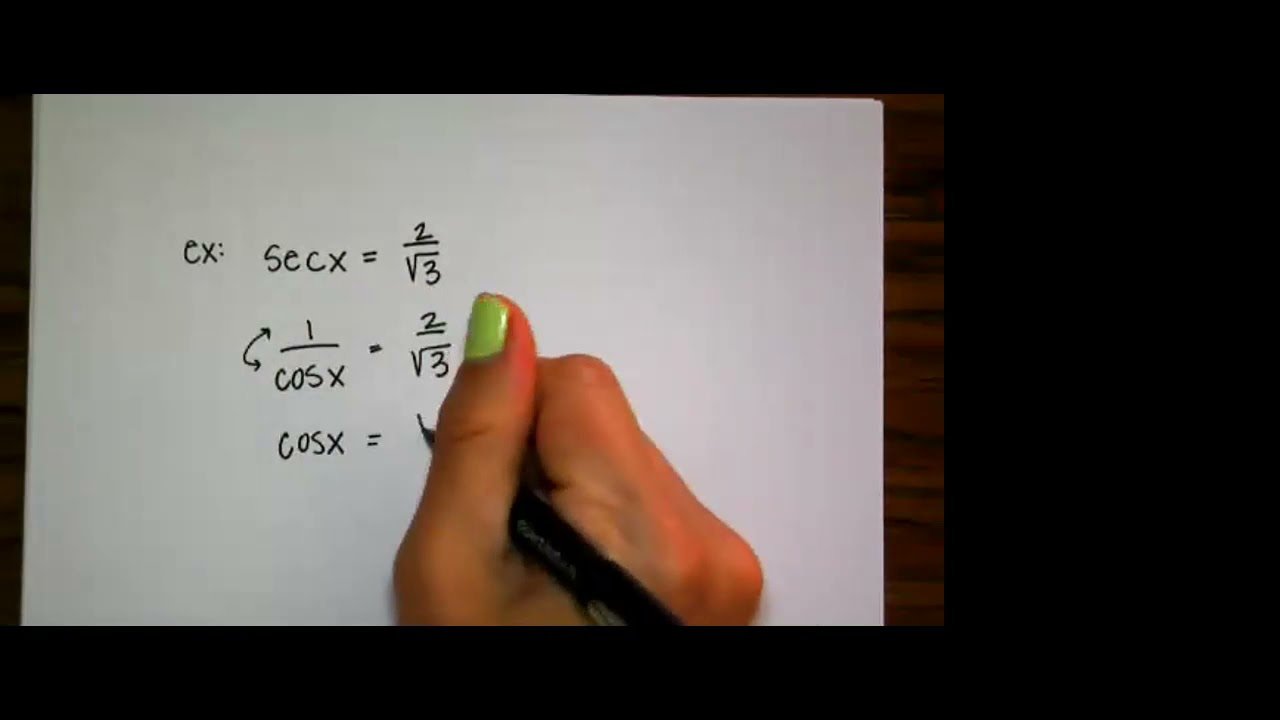 ex: secx = 2/√3
1/cosx = 2/√3
cosx =